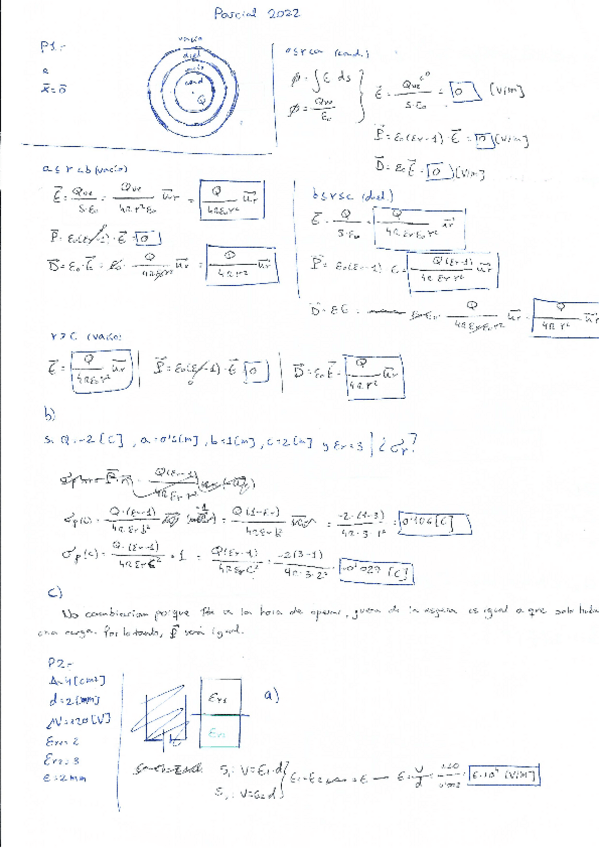 Parcial 2022
P1.-
a
vacio
diel
vacio
cond
Q
a≤r<a (cond.)
φ = ∫ E ds
φ = Qve / ε₀
E = Qve / S·ε₀ = 0 [V/m]
P = ε₀(εr-1) E = 0 [V/m]
D = ε₀ E = 0 [V/m]
a≤r<b (vacio)
E = Qve / S·ε₀ = Qve / 4πr²ε₀ ur = Q / 4πε₀r² ur
P = ε₀(εr-1)·E = 0
D = ε₀·E = ε₀· Q / 4πε₀r² ur = Q / 4πr² ur
b≤r≤c (diel.)
E = Q / S·ε₀ = Q / 4πεrε₀r² ur
P = ε₀(εr-1) E = Q(εr-1) / 4πεr r² ur
D = εE = Q / 4πεrε₀r² ur = Q / 4πr² ur
r>c (vacio)
E = Q / 4πε₀r² ur | P = ε₀(εr-1)·E = 0 | D = ε₀E = Q / 4πr² ur
b)
Si Q=-2[C], a=0'5[m], b=1[m], c=2[m] y εr=3 | ¿σp?
σp(b) = Q·(εr-1) / 4πεr b² = Q(1-εr) / 4πεr b² = -2·(1-3) / 4π·3·1² = 0'106[C]
σp(c) = Q·(εr-1) / 4πεr c² · 1 = Q(εr-1) / 4πεr c² = -2(3-1) / 4π·3·2² = -0'027 [C]
c)
No cambiarian porque a la hora de operar, fuera de la esfera es igual a que solo
una carga. Por lo tanto, P será igual.
P2.-
A=4[cm²]
d=2[mm]
ΔV=120[V]
εr1=2
εr2=3
e=2mm
εr2
εr1
a)
S₁: V=E₁·d
S₂: V=E₂·d
E₁=E₂=E — E = V/d = 6·10⁴ [V/m]